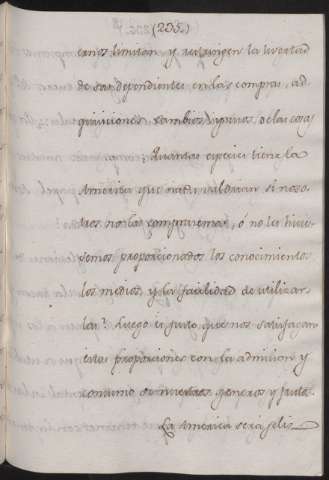 (235.)
canos limitan y restringen la livertad
de sus dependientes en las compras, ad-
quisiciones, cambios, y giros de las cosas
¿Quantas especies tiene la
America que nada valdrian si noso-
tros no las comprasemos, ó no les huvie-
semos proporcionado los conocimientos
los medios y la facilidad de utilizar-
las? Luego es justo que nos satisfagan
estas proporciones con la admision y
consumo de nuestros generos y frutos.
La America sera feliz